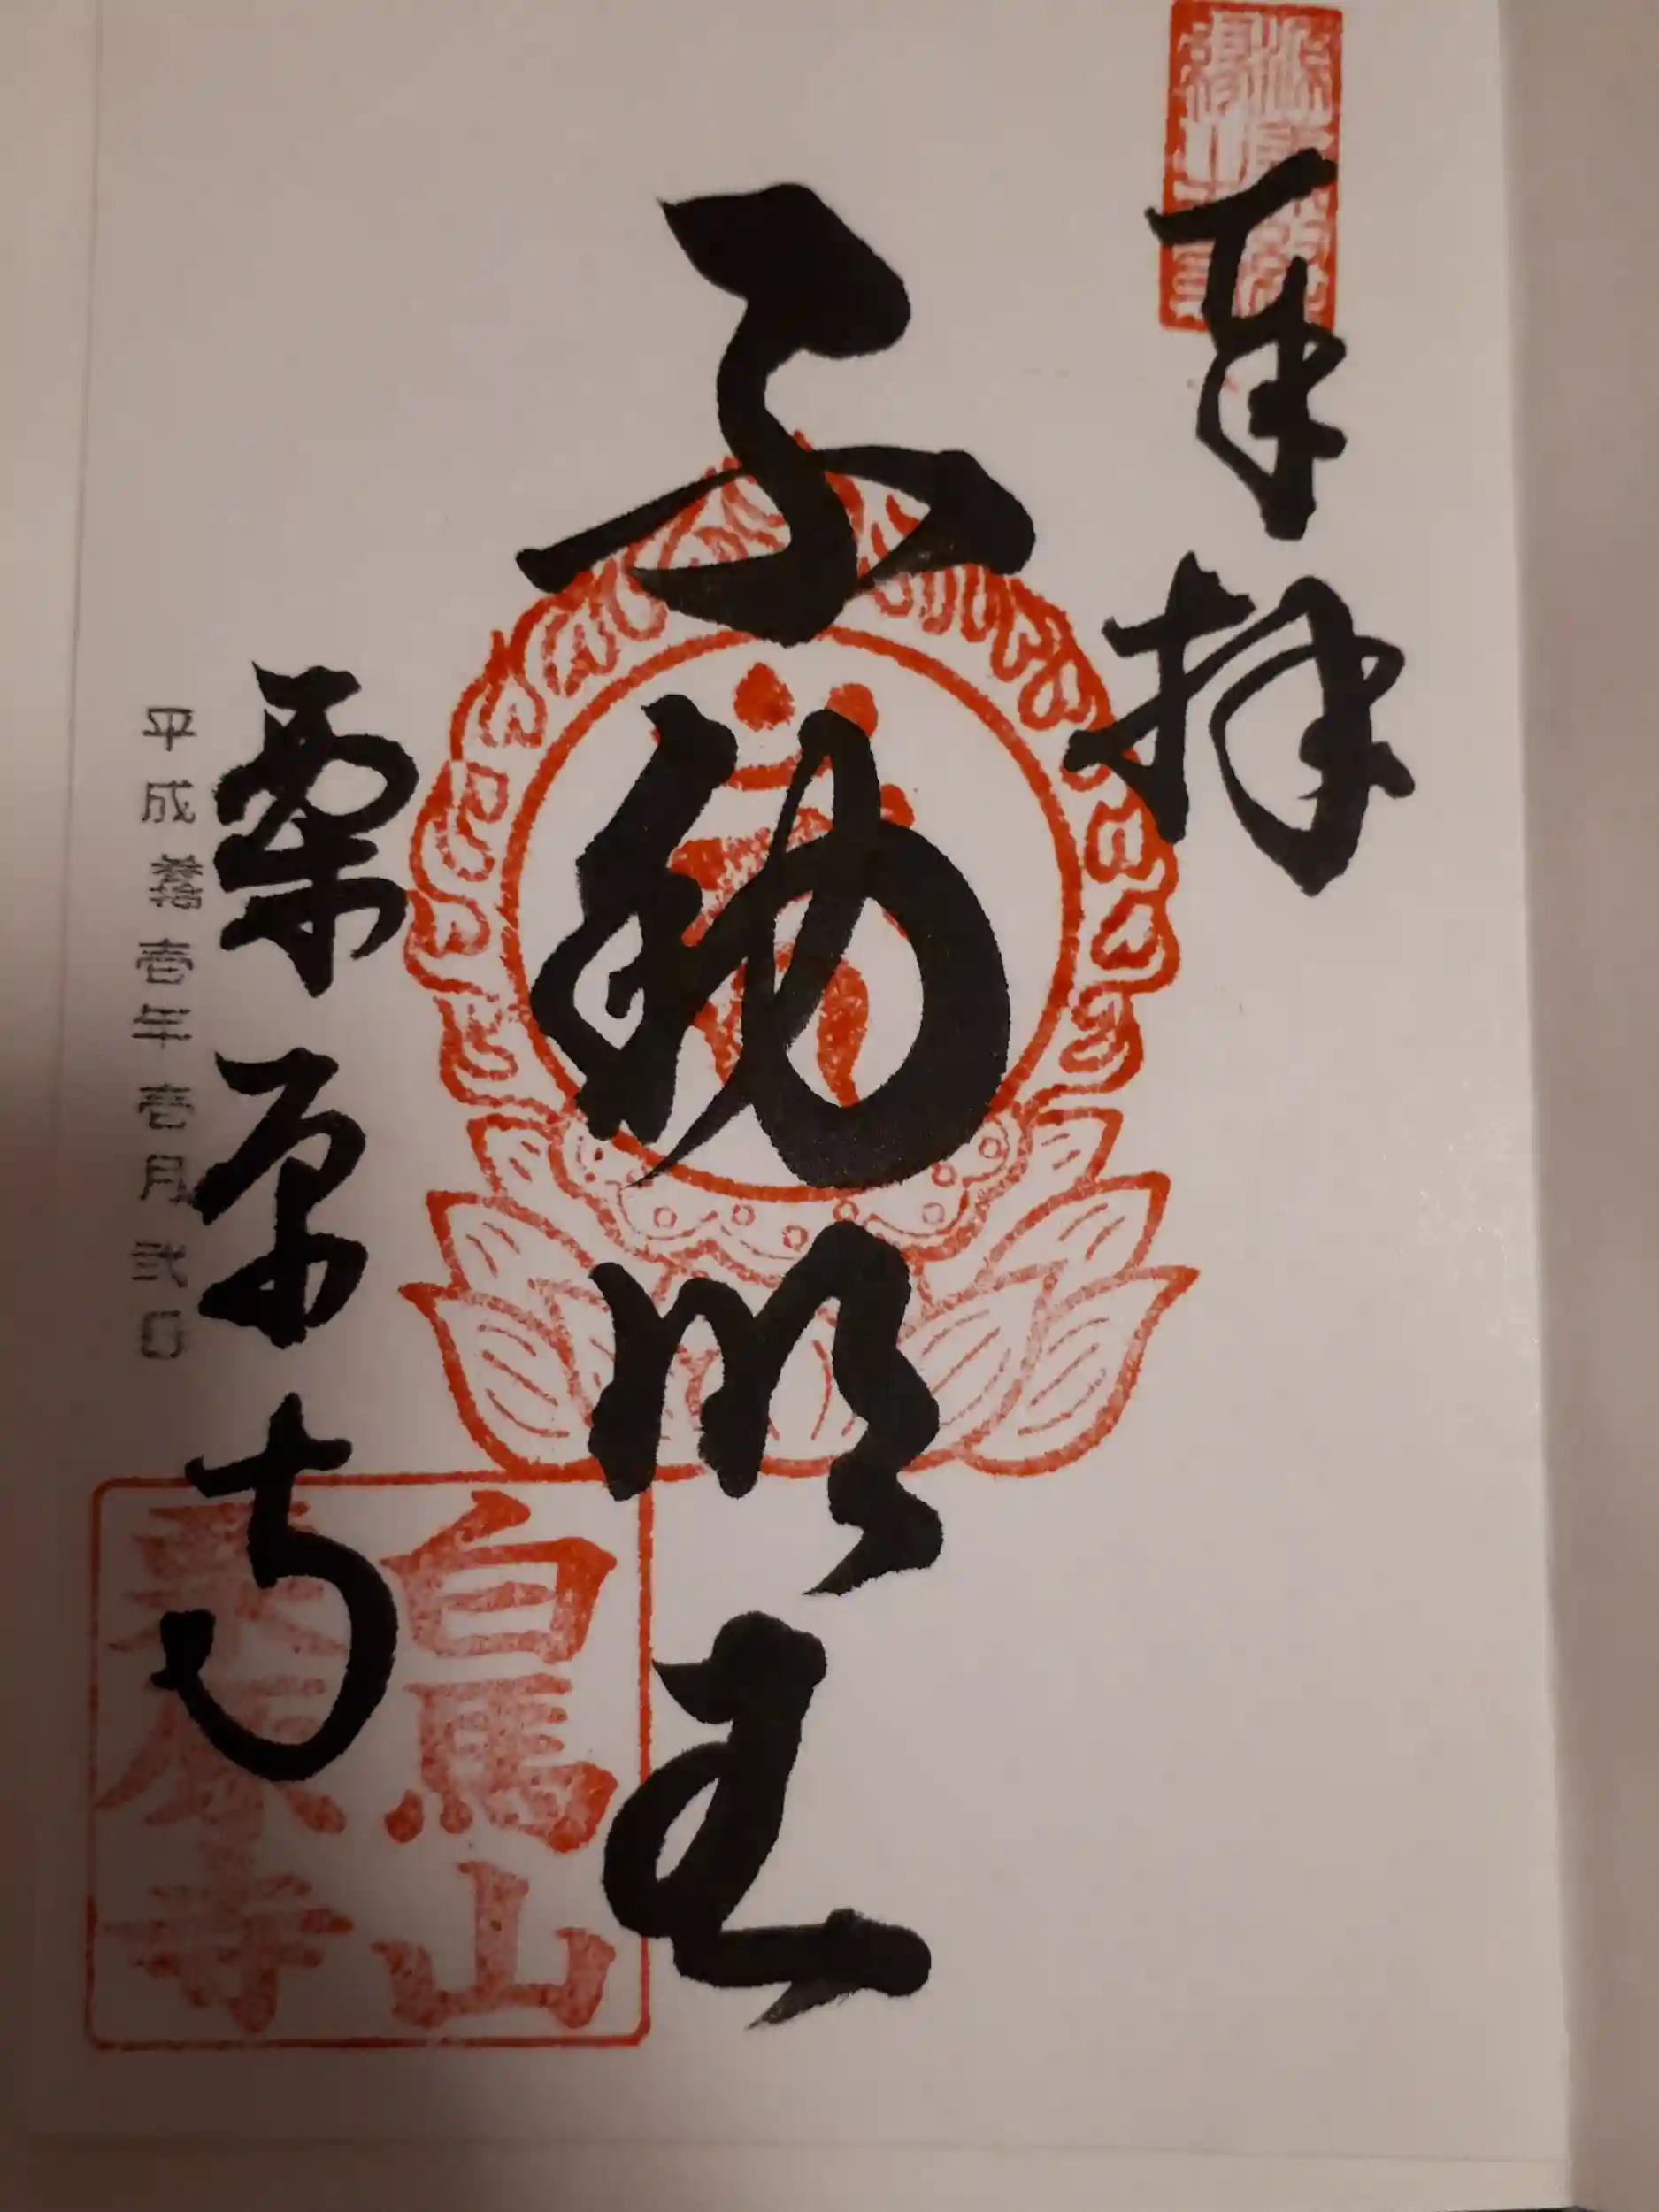 奉拝
不動明王
栗原寺
平成参拾壱年壱月弐日
白馬山
原寺